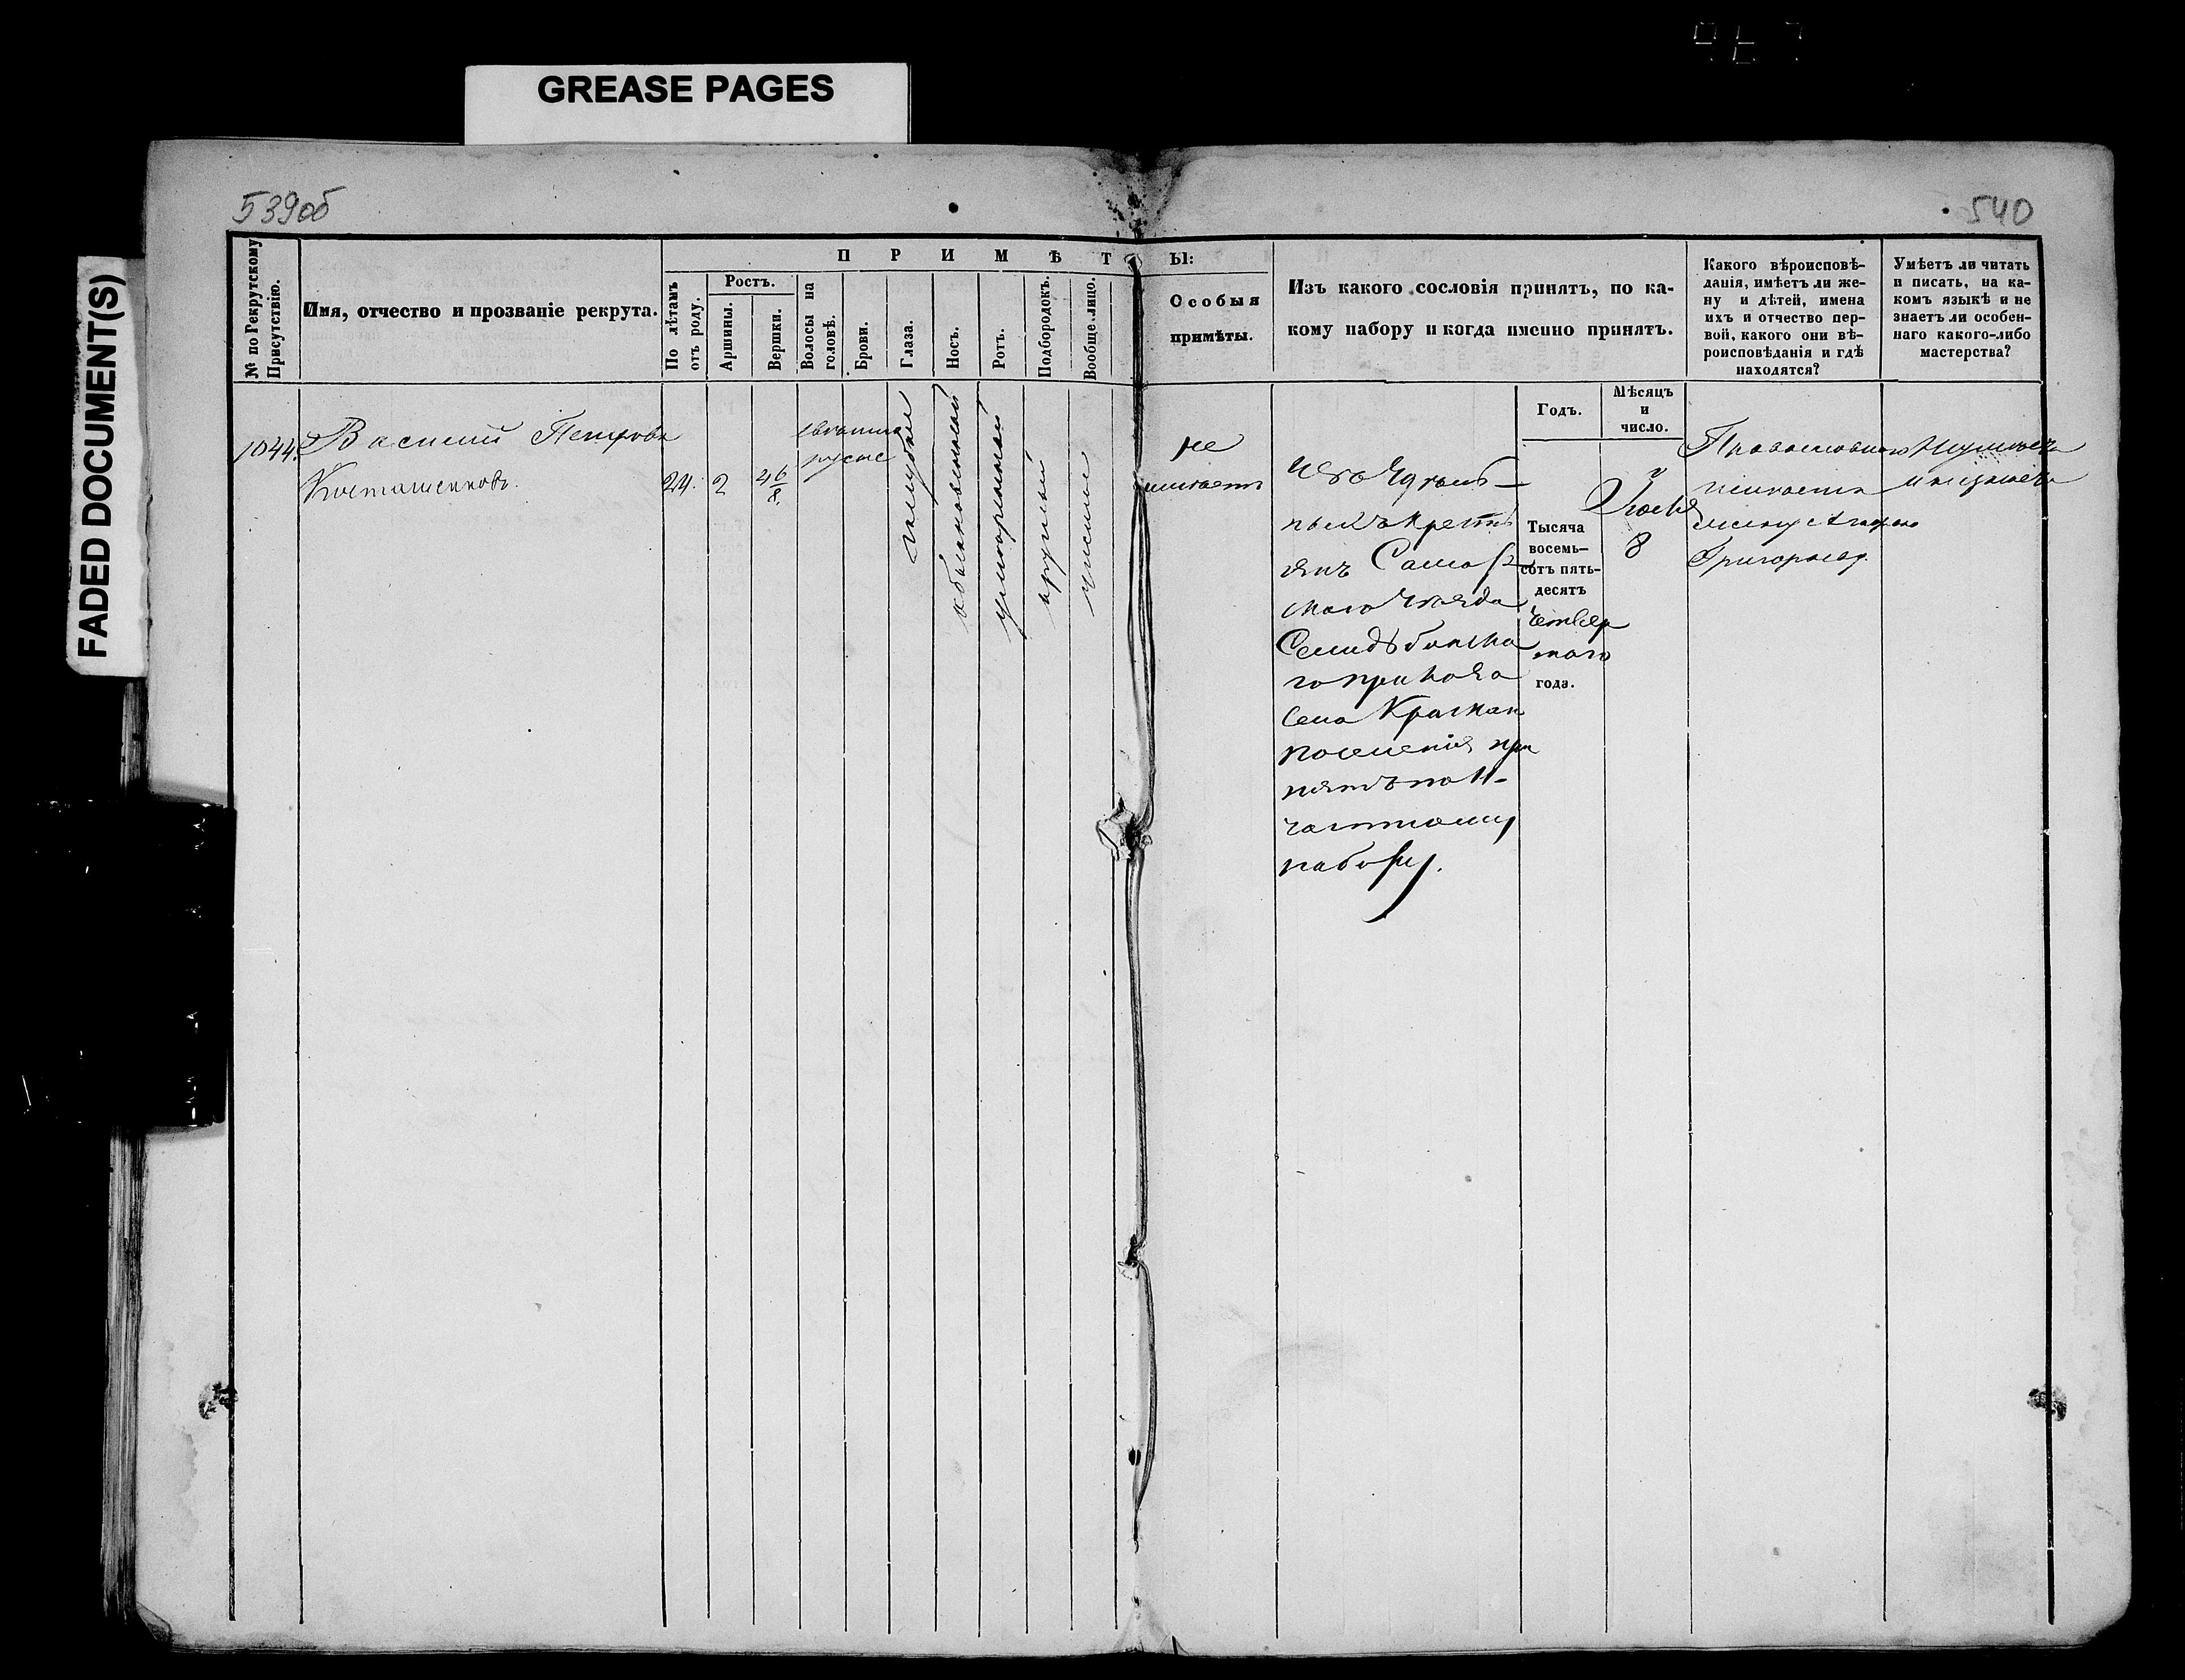 GREASE PAGES
FADED DOCUMENT(S)
539об
540
№ по Рекрутскому Присутствію.
Имя, отчество и прозваніе рекрута.
ПРИМѢТЫ:
По лѣтамъ отъ роду.
Ростъ.
Аршины.
Вершки.
Волосы на головѣ.
Брови.
Глаза.
Носъ.
Ротъ.
Подбородокъ.
Вообще лицо.
Особыя
примѣты.
Изъ какого сословія принятъ, по ка-
кому набору и когда именно принятъ.
Какого вѣроисповѣ-
данія, имѣетъ ли же-
ну и дѣтей, имена
ихъ и отчество пер-
вой, какого они вѣ-
роисповѣданія и гдѣ
находятся?
Умѣетъ ли читать
и писать, на ка-
комъ языкѣ и не
знаетъ ли особен-
наго какого-либо
мастерства?
Годъ.
Мѣсяцъ
и
число.
1044.
Василій Петровъ
24.
2
4 6/8
русые
голубые
обыкновенный
умѣренный
круглый
чистое
не
имѣетъ
Изъ Удѣль-
ныхъ крестьянъ
Самар-
скаго уѣзда
приказа
села
поселенія при
нятъ по
частному
набору.
Тысяча
восемь-
сотъ пять-
десятъ
четвер
таго
года.
Іюля
8
Православнаго
имѣетъ
жену
Григорьеву